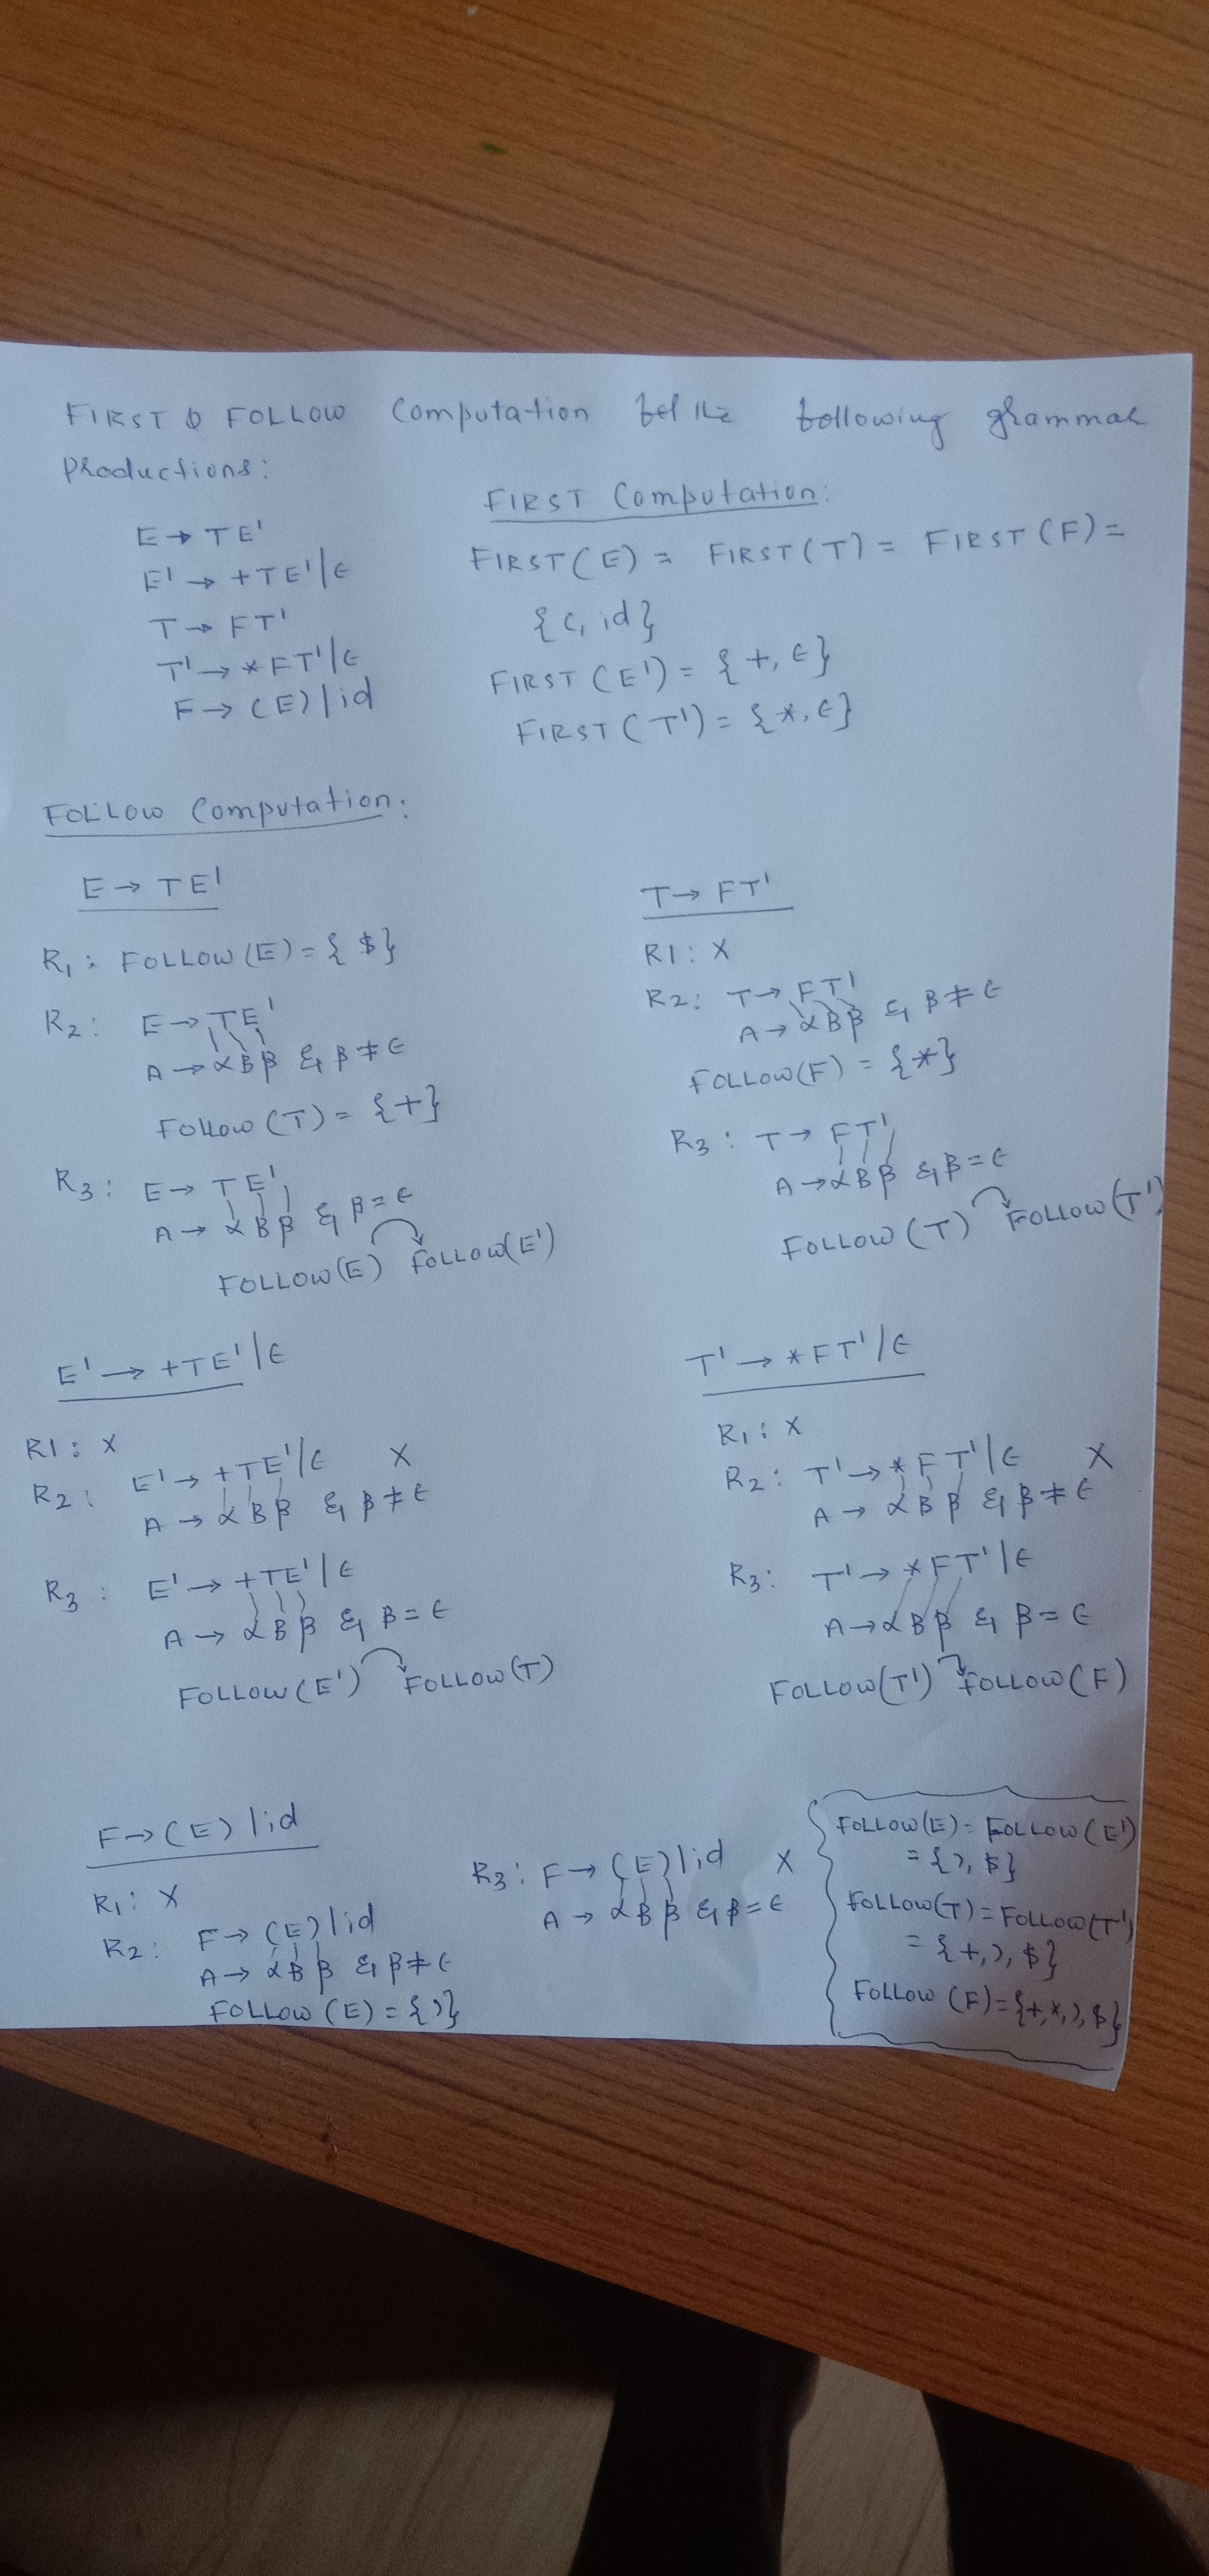 FIRST & FOLLOW Computation for the following grammar
Productions:
E → TE'
E' → +TE'/ε
T → FT'
T' → *FT'/ε
F → (E)/id
FIRST Computation:
FIRST(E) = FIRST(T) = FIRST(F) =
{(, id}
FIRST(E') = {+, ε}
FIRST(T') = {*, ε}
FOLLOW Computation:
E → TE'
R1: FOLLOW(E) = {$}
R2: E → TE'
A → αBβ & β ≠ ε
Follow(T) = {+}
R3: E → TE'
A → αBβ & β = ε
FOLLOW(E) FOLLOW(E')
E' → +TE'/ε
R1: X
R2: E' → +TE'/ε X
A → αBβ & β ≠ ε
R3: E' → +TE'/ε
A → αBβ & β = ε
FOLLOW(E') FOLLOW(T)
T → FT'
R1: X
R2: T → FT'
A → αBβ & β ≠ ε
FOLLOW(F) = {*}
R3: T → FT'
A → αBβ & β = ε
FOLLOW(T) FOLLOW(T')
T' → *FT'/ε
R1: X
R2: T' → *FT'/ε X
A → αBβ & β ≠ ε
R3: T' → *FT'/ε
A → αBβ & β = ε
FOLLOW(T') FOLLOW(F)
F → (E)/id
R1: X
R2: F → (E)/id
A → αBβ & β ≠ ε
FOLLOW(E) = {)}
R3: F → (E)/id X
A → αBβ & β = ε
FOLLOW(E) = FOLLOW(E')
= {), $}
FOLLOW(T) = FOLLOW(T')
= {+, ), $}
FOLLOW(F) = {+, *, ), $}